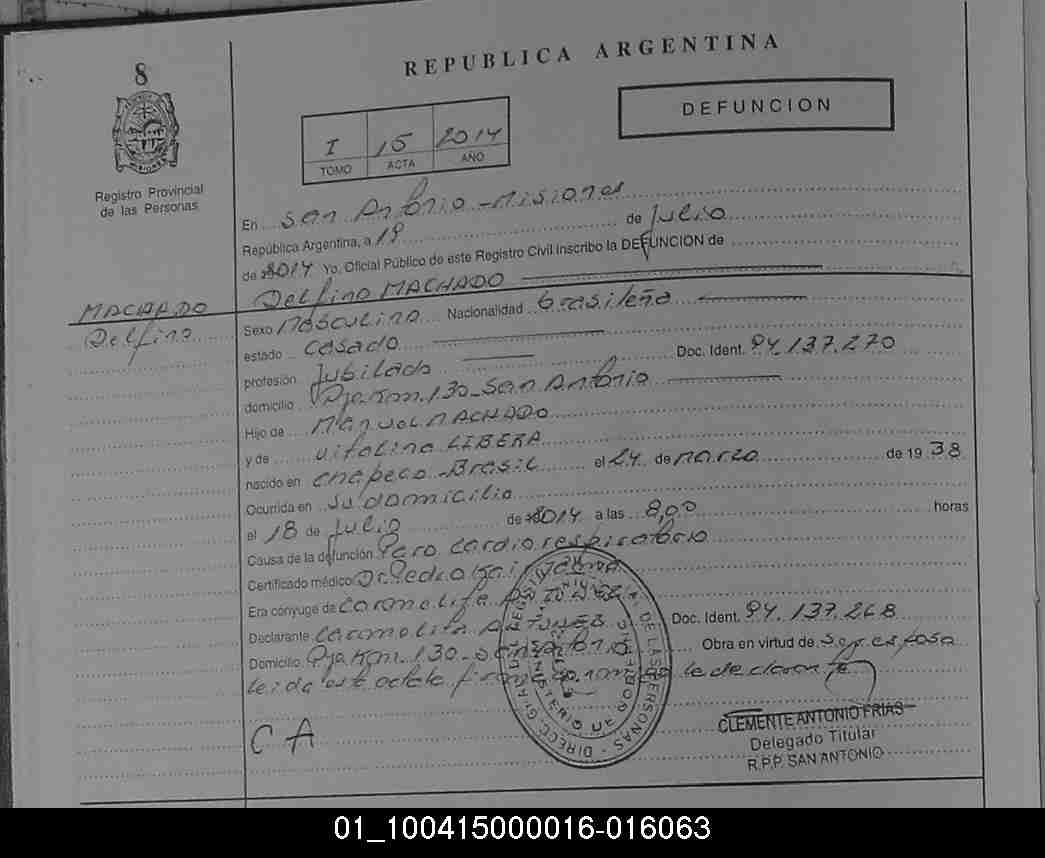 8
REPUBLICA ARGENTINA
DEFUNCION
I 15 2014
TOMO ACTA AÑO
Registro Provincial
de las Personas
En San Antonio - Misiones
República Argentina, a 19 de Julio
de 2014 Yo, Oficial Público de este Registro Civil inscribo la DEFUNCION de
Delfino MACHADO
MACHADO
Delfino
Sexo Masculino Nacionalidad brasileña
estado Casado
profesión Jubilado Doc. Ident. 94.137.270
domicilio Pje Km. 130 - San Antonio
Hijo de Manuel MACHADO
y de Vitalina LIBERA
nacido en Chapeco - Brasil el 24 de marzo de 19 38
Ocurrida en su domicilio
el 18 de Julio de 2014 a las 8,00 horas
Causa de la defunción Paro cardio respiratorio
Certificado médico Dr. Pedro
Era cónyuge de Carmelita ANTUNEZ
Declarante Carmelita ANTUNEZ Doc. Ident. 94.137.268
Domicilio Pje Km. 130 - San Antonio Obra en virtud de ser esposa
leida este acta la la declarante
CA
CLEMENTE ANTONIO FRIAS
Delegado Titular
R.P.P. SAN ANTONIO
01_100415000016-016063